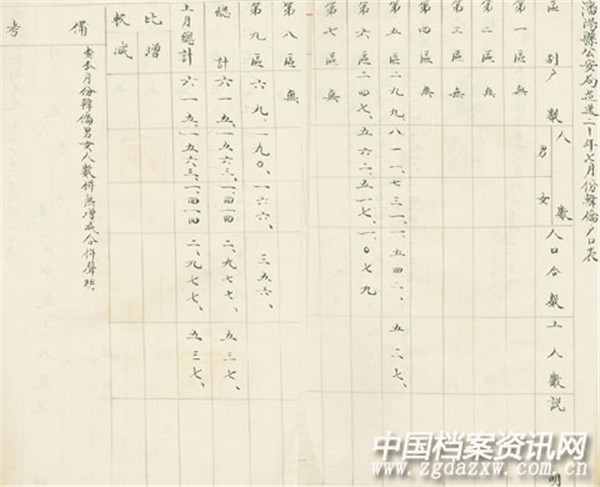 瀋陽縣公安局造送二十年七月份韓僑戶口表
區別 戶數 人數 男 女 人口合數 工人數 說明
第一區 無
第二區 無
第三區 無
第四區 無
第五區 二九九 八一一、七三一、一五四二、五三七、
第六區 二四七、五六二、五一七、一〇七九
第七區 無
第八區 無
第九區 六九、一九〇、一六六、三五六、
總計 六一五、一五六三、一四一四 二、九七七、五三七、
上月總計 六一五、一五六三、一四一四 二、九七七、五三七、
比較 增 減
備考
查本月份韓僑男女人數併無增減合併聲明、
中国档案资讯网
www.zgdazxw.com.cn